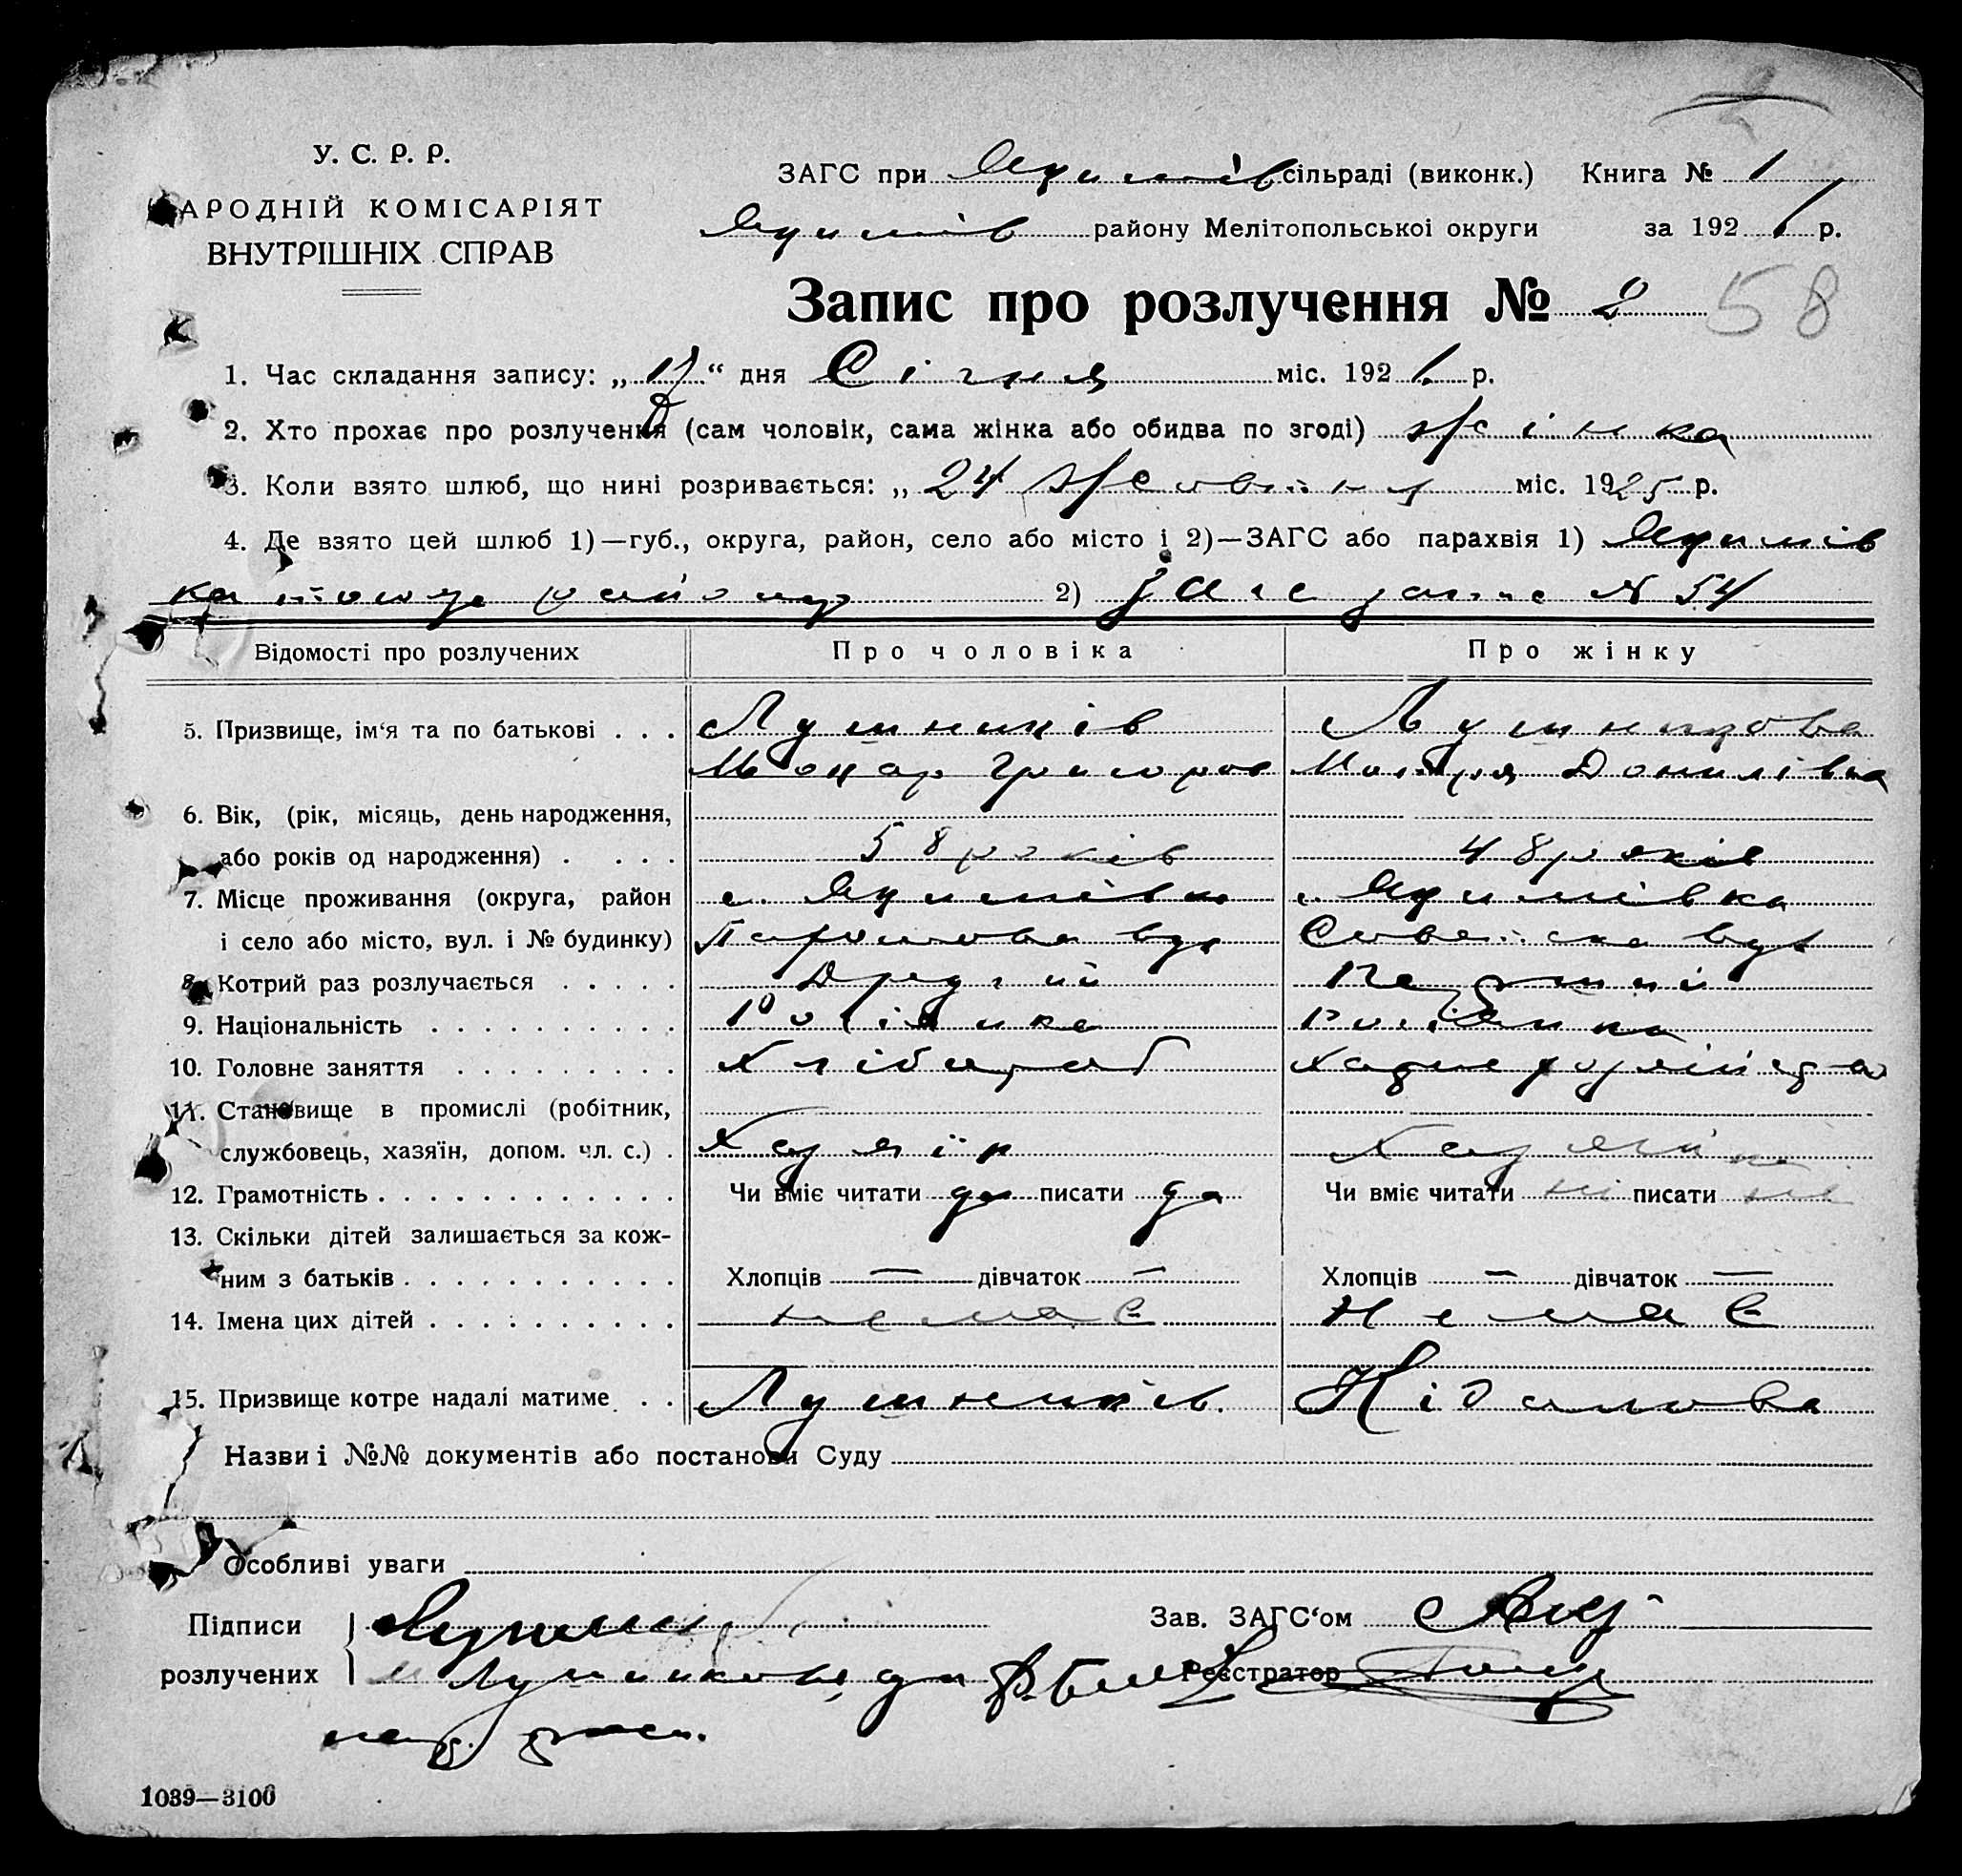 У. С. Р. Р.
АРОДНІЙ КОМІСАРІЯТ
ВНУТРІШНІХ СПРАВ
ЗАГС при Якимів сільраді (виконк.) Книга № 1
Якимів району Мелітопольської округи за 192 р.
Запис про розлучення № 2
58
1. Час складання запису: „ “ дня Січня міс. 192 р.
2. Хто прохає про розлучення (сам чоловік, сама жінка або обидва по згоді) жінка
3. Коли взято шлюб, що нині розривається: „ 24 жовтня міс. 1925 р.
4. Де взято цей шлюб 1)—губ., округа, район, село або місто і 2)—ЗАГС або парахвія 1) Якимів
ка того району 2) Загс запис № 54
Відомості про розлучених Про чоловіка Про жінку
5. Призвище, ім‘я та по батькові . . . Лушников Лушникова
Григоров Данилівна
6. Вік, (рік, місяць, день народження,
або років од народження) . . . . 58 років 48 років
7. Місце проживання (округа, район с. Якимівка с. Якимівка
і село або місто, вул. і № будинку) вул вул
8. Котрий раз розлучається . . . . . Другий Первий
9. Національність . . . . . . . . . . Росіянка
10. Головне заняття . . . . . . . . . Хлібороб
11. Становище в промислі (робітник,
службовець, хазяїн, допом. чл. с.) . Хазяїн Хазяйка
12. Грамотність . . . . . . . . . . . . Чи вміє читати да писати да Чи вміє читати ні писати ні
13. Скільки дітей залишається за кож-
ним з батьків . . . . . . . . . . . Хлопців — дівчаток — Хлопців — дівчаток —
14. Імена цих дітей . . . . . . . . . . немає Немає
15. Призвище котре надалі матиме . . Лушников.
Назви і №№ документів або постанови Суду
Особливі уваги
Підписи Зав. ЗАГС‘ом
розлучених Реєстратор
1039—3100